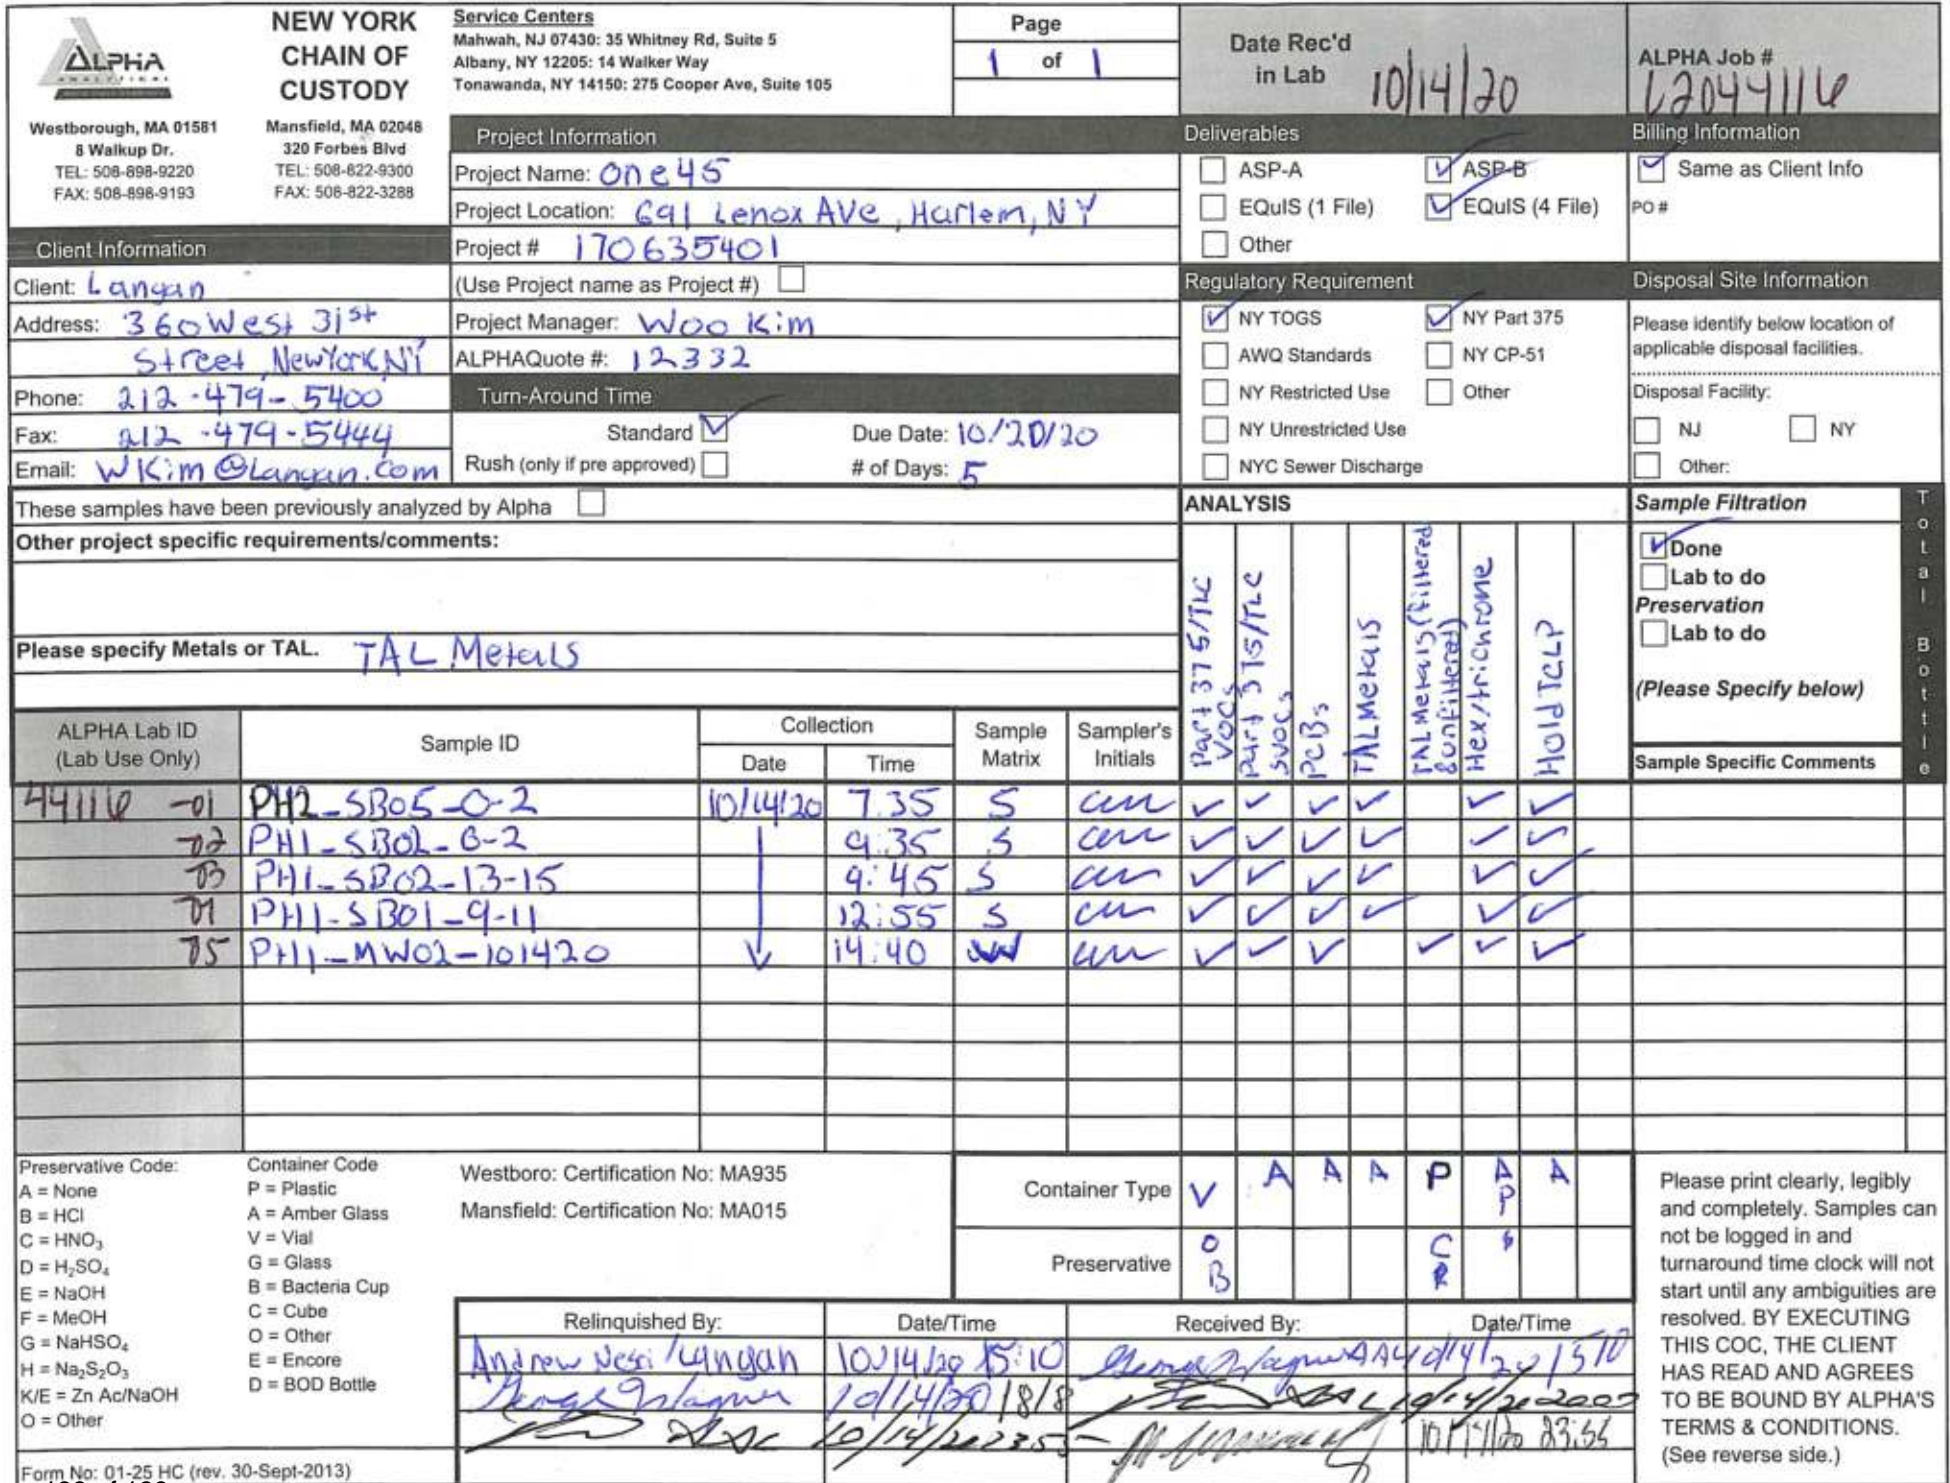 ALPHA
ANALYTICAL
NEW YORK
CHAIN OF
CUSTODY
Westborough, MA 01581
8 Walkup Dr.
TEL: 508-898-9220
FAX: 508-898-9193
Mansfield, MA 02048
320 Forbes Blvd
TEL: 508-822-9300
FAX: 508-822-3288
Service Centers
Mahwah, NJ 07430: 35 Whitney Rd, Suite 5
Albany, NY 12205: 14 Walker Way
Tonawanda, NY 14150: 275 Cooper Ave, Suite 105
Page
1 of 1
Date Rec'd
in Lab 10/14/20
ALPHA Job #
L2044116
Client Information
Client: Langan
Address: 360 West 31st
Street, New York, NY
Phone: 212-479-5400
Fax: 212-479-5444
Email: WKim@Langan.com
Project Information
Project Name: One45
Project Location: 691 Lenox Ave, Harlem, NY
Project # 170635401
(Use Project name as Project #)
Project Manager: Woo Kim
ALPHAQuote #: 12332
Turn-Around Time
Standard Due Date: 10/20/20
Rush (only if pre approved) # of Days: 5
Deliverables
ASP-A ASP-B
EQuIS (1 File) EQuIS (4 File)
Other
Regulatory Requirement
NY TOGS NY Part 375
AWQ Standards NY CP-51
NY Restricted Use Other
NY Unrestricted Use
NYC Sewer Discharge
Billing Information
Same as Client Info
PO #
Disposal Site Information
Please identify below location of
applicable disposal facilities.
Disposal Facility:
NJ NY
Other:
These samples have been previously analyzed by Alpha
Other project specific requirements/comments:
Please specify Metals or TAL. TAL Metals
ANALYSIS
Part 375/TLC
VOCs
Part 375/TLC
SVOCs
PCBs
TAL Metals
TAL Metals (filtered
& unfiltered)
Hex/trichrome
Hold TCLP
Sample Filtration
Done
Lab to do
Preservation
Lab to do
(Please Specify below)
Total Bottle
ALPHA Lab ID
(Lab Use Only)
Sample ID
Collection
Date Time
Sample
Matrix
Sampler's
Initials
Sample Specific Comments
44116 -01 PH2_SB05_0-2 10/14/20 7:35 S
-02 PH1_SB02_0-2 9:35 S
-03 PH1_SB02_13-15 9:45 S
PH1_SB01_9-11 12:55 S
-05 PH1_MW02_101420 14:40 W
Preservative Code:
A = None
B = HCl
C = HNO3
D = H2SO4
E = NaOH
F = MeOH
G = NaHSO4
H = Na2S2O3
K/E = Zn Ac/NaOH
O = Other
Container Code
P = Plastic
A = Amber Glass
V = Vial
G = Glass
B = Bacteria Cup
C = Cube
O = Other
E = Encore
D = BOD Bottle
Westboro: Certification No: MA935
Mansfield: Certification No: MA015
Container Type V A A A P A P A
Preservative O B C
Relinquished By: Date/Time Received By: Date/Time
Andrew Langan 10/14/20 15:10 George Wagner AAL 10/14/20 1510
George Wagner 10/14/20 1818 AAL
AAL 10/14/20 2355 10/14/20 23:55
Please print clearly, legibly
and completely. Samples can
not be logged in and
turnaround time clock will not
start until any ambiguities are
resolved. BY EXECUTING
THIS COC, THE CLIENT
HAS READ AND AGREES
TO BE BOUND BY ALPHA'S
TERMS & CONDITIONS.
(See reverse side.)
Form No: 01-25 HC (rev. 30-Sept-2013)